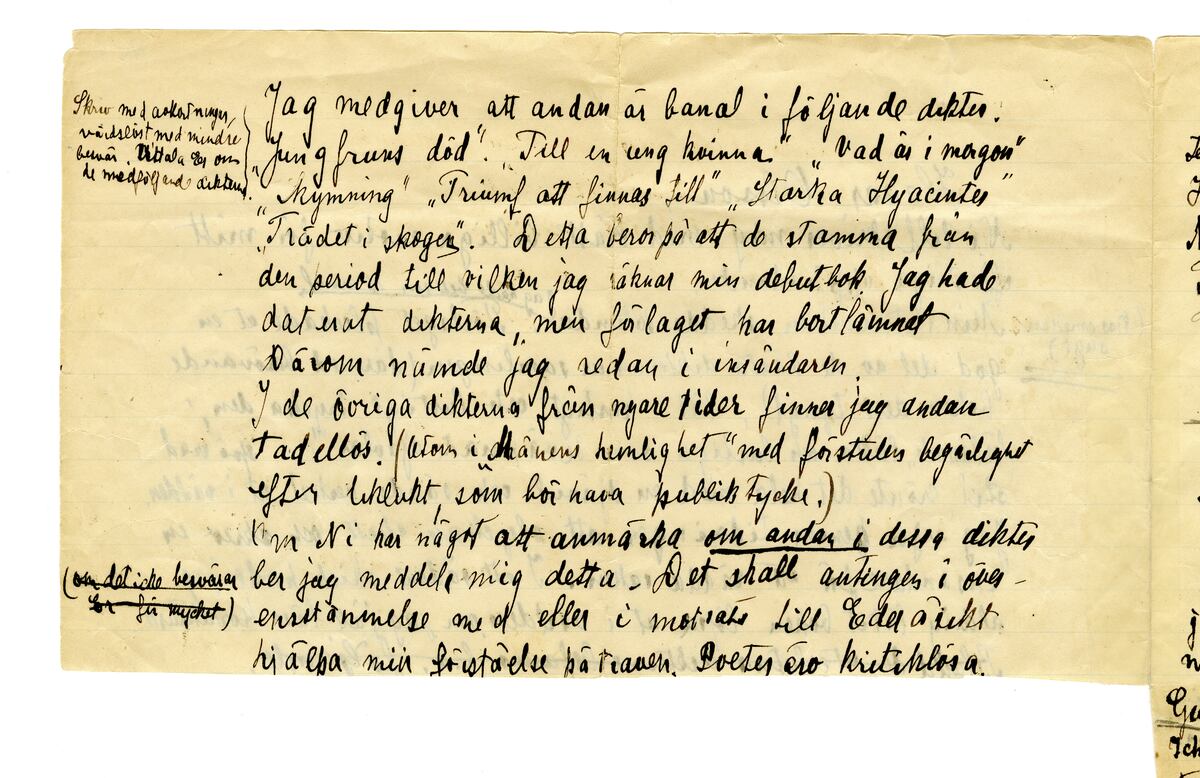 Skriv med avkortningar,
vårdslöst med mindre
besvär. Uttala Er om
de medföljand dikterna
Jag medgiver att andan är banal i följande dikter:
"Jungfruns död". "Till en ung kvinna" "Vad är i morgon"
"Skymning" "Triumf att finnas till" "Starka Hyacinter"
"Trädet i skogen". Detta beror på att de stamma från
den period till vilken jag räknar min debutbok. Jag hade
daterat dikterna, men förlaget har bortlämnat
Därom nämde jag redan i insändaren.
I de övriga dikterna från nyare tider finner jag andan
tadellös. (utom i Månens hemlighet" med förstulen begärlighet
efter liklukt, som bör hava publiktycke.)
Om Ni har något att anmärka om andan i dessa dikter
(om det icke besvärar
Er för mycket)
ber jag meddela mig detta - Det skall antingen i över-
ensstämmelse med eller i motsats till Eder åsikt
hjälpa min förståelse på traven. Poeter äro kritiklösa.